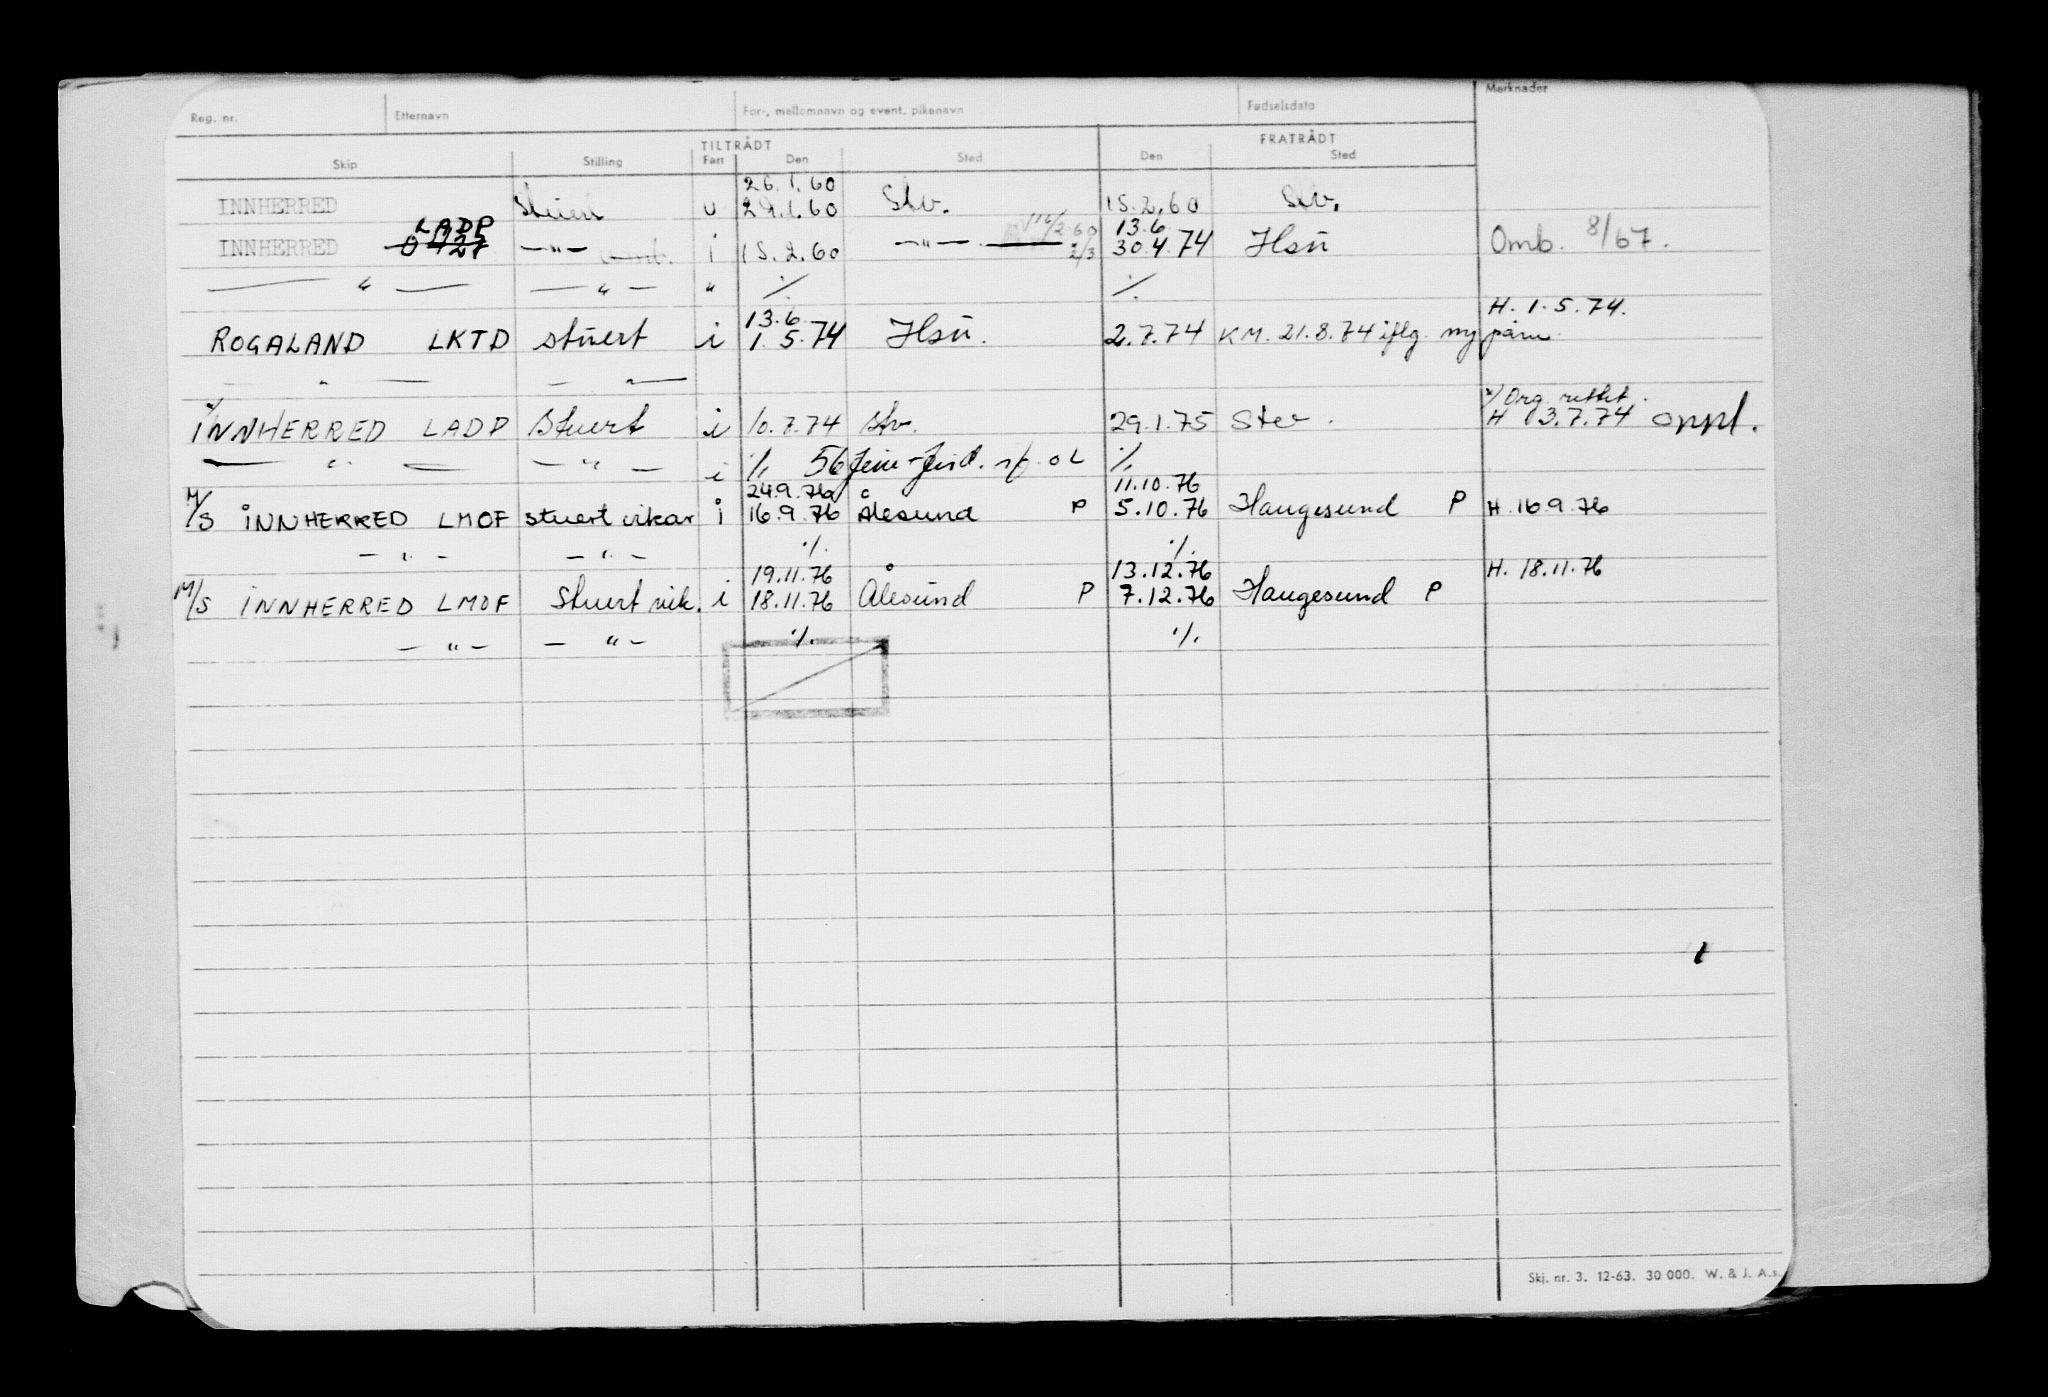 Reg. nr. Etternavn For-, mellomnavn og event. pikenavn Fødselsdato Merknader
TILTRÅDT FRATRÅDT
Skip Stilling Fart Den Sted Den Sted
26.1.60
INNHERRED Stuert u 29.1.60 Stv. 15.2.60 Stv.
LADP 13.6
INNHERRED 0427 —"— omb. i 15.2.60 —"— 2/3 30.4.74 Hsu Omb. 8/67.
— " — — " — " ./. ./.
13.6 H. 1.5.74.
ROGALAND LKTD stuert i 1.5.74 Hsu. 2.7.74 KM. 21.8.74 iflg. ny påm.
— " — — " —
x/ Org. rettet.
x/ INNHERRED LADP Stuert i 10.7.74 Stv. 29.1.75 Stv. H 3.7.74 oppl.
— " — — " — i ./. 56 ./.
24.9.76 11.10.76
M/S INNHERRED LMOF stuert vikar i 16.9.76 Ålesund P 5.10.76 Haugesund P H. 16.9.76
— " — — " — ./. ./.
19.11.76 13.12.76 H. 18.11.76
M/S INNHERRED LMOF Stuert vik. i 18.11.76 Ålesund P 7.12.76 Haugesund P
— " — — " — ./. ./.
Skj. nr. 3. 12-63. 30 000. W. & J. A.s.